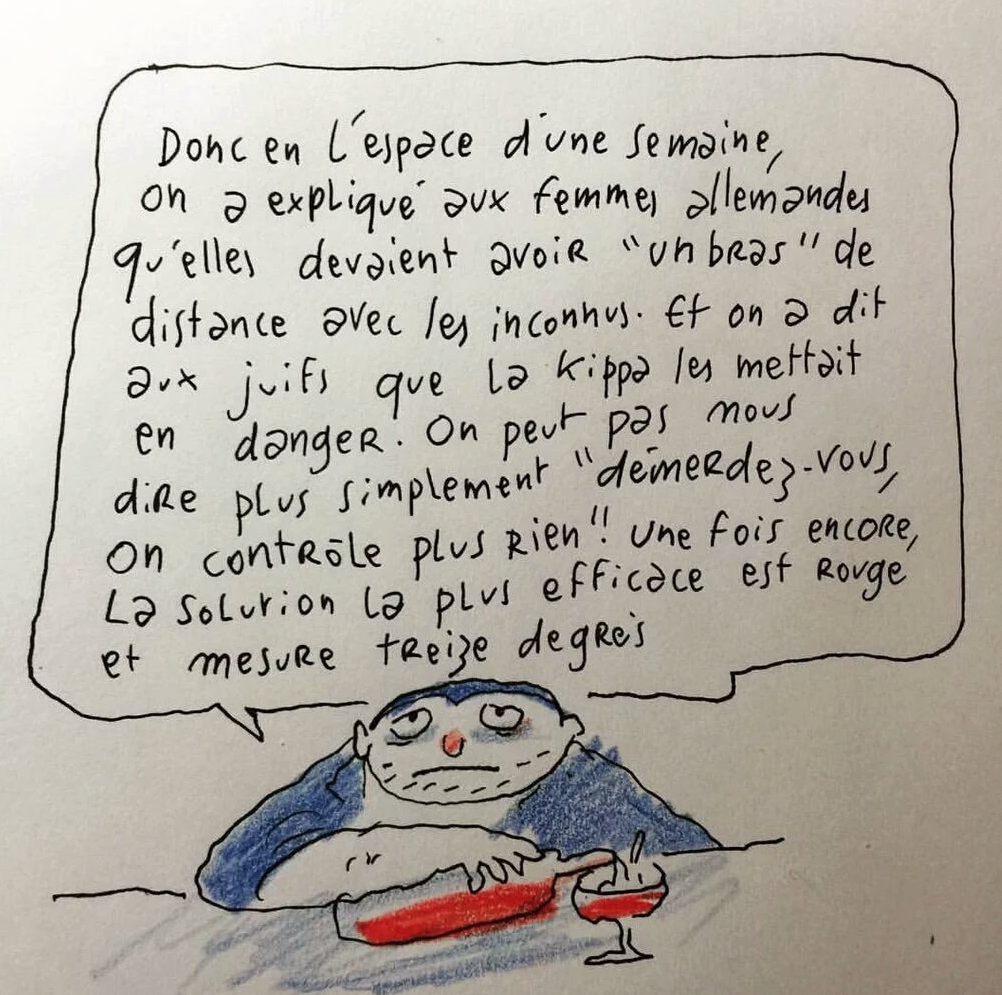 Donc en l'espace d'une semaine,
on a expliqué aux femmes allemandes
qu'elles devaient avoir "un bras" de
distance avec les inconnus. Et on a dit
aux juifs que la kippa les mettait
en danger. On peut pas nous
dire plus simplement "démerdez-vous,
on contrôle plus rien"! Une fois encore,
la solution la plus efficace est rouge
et mesure treize degrés